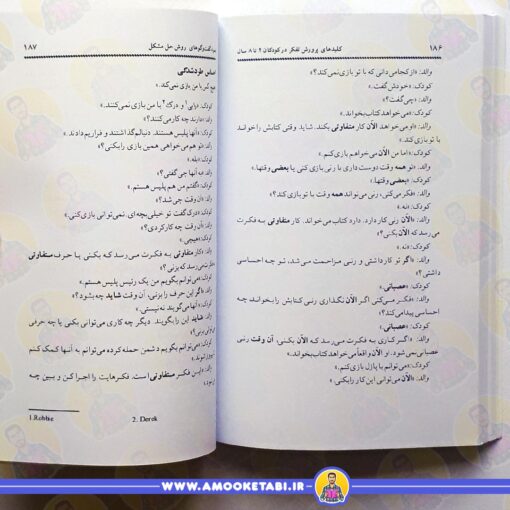 ۱۸۶ کلیدهای پرورش تفکر در کودکان ۴ تا ۸ سال
والد: «از کجا می‌دانی که با تو بازی نمی‌کند؟»
کودک: «خودش گفت.»
والد: «چی گفت؟»
کودک: «می‌خواهد کتاب بخواند.»
والد: «او می‌خواهد الآن کار متفاوتی بکند. شاید وقتی کتابش را خواند با تو بازی کند.»
کودک: «اما من الآن می‌خواهم بازی کنم.»
والد: «تو همه وقت دوست داری با رنی بازی کنی یا بعضی وقتها.»
کودک: «بعضی وقتها.»
والد: «فکر می‌کنی، رنی می‌تواند همه وقت با تو بازی کند؟»
کودک: «نه.»
والد: «الآن رنی کار دارد. دارد کتاب می‌خواند. کار متفاوتی به فکرت می‌رسد که الآن بکنی؟»
کودک: «نه.»
والد: «اگر تو کار داشتی و رنی مزاحمت می‌شد، تو چه احساسی داشتی؟»
کودک: «عصبانی.»
والد: «فکر می‌کنی اگر الآن نگذاری رنی کتابش را بخواند چه احساسی پیدا می‌کند؟»
کودک: «عصبانی.»
والد: «اگر کاری به فکرت می‌رسد که الآن بکنی، آن وقت رنی عصبانی نمی‌شود. او الآن واقعاً می‌خواهد کتاب بخواند.»
کودک: «می‌توانم با پازل بازی کنم.»
والد: «الآن می‌توانی این کار را بکنی.»
گفت‌وگوهای روش حل مشکل ۱۸۷
احساس طردشدگی
کودک: «رابی۱ و درک۲ با من بازی نمی‌کنند.»
والد: «دارند چه کار می‌کنند؟»
کودک: «آنها پلیس هستند. دنبالم گذاشتند و فراریم دادند.»
والد: «تو هم می‌خواهی همین بازی را بکنی؟»
کودک: «بله.»
والد: «به آنها چی گفتی؟»
کودک: «گفتم من هم پلیس هستم.»
والد: «آن وقت چی شد؟»
کودک: «درک گفت تو خیلی بچه‌ای. نمی‌توانی بازی کنی.»
والد: «آن وقت چه کار کردی؟»
کودک: «هیچی.»
والد: «کار متفاوتی به فکرت می‌رسد که بکنی یا حرف متفاوتی به نظرت نمی‌رسد که بزنی؟»
کودک: «می‌توانم بگویم من یک رئیس پلیس هستم.»
والد: «اگر این حرف را بزنی، آن وقت شاید چه بشود؟»
کودک: «آنها می‌گویند نه نیستی.»
والد: «شاید این را بگویند. دیگر چه کاری می‌توانی بکنی یا چه حرفی می‌توانی بزنی؟»
کودک: «می‌توانم بگویم دشمن حمله کرده می‌توانم به آنها کمک کنم
والد: «این فکر متفاوتی است. فکرهایت را اجرا کن و ببین چه
1. Robbie
2. Derek
WWW.AMOOKETABI.IR